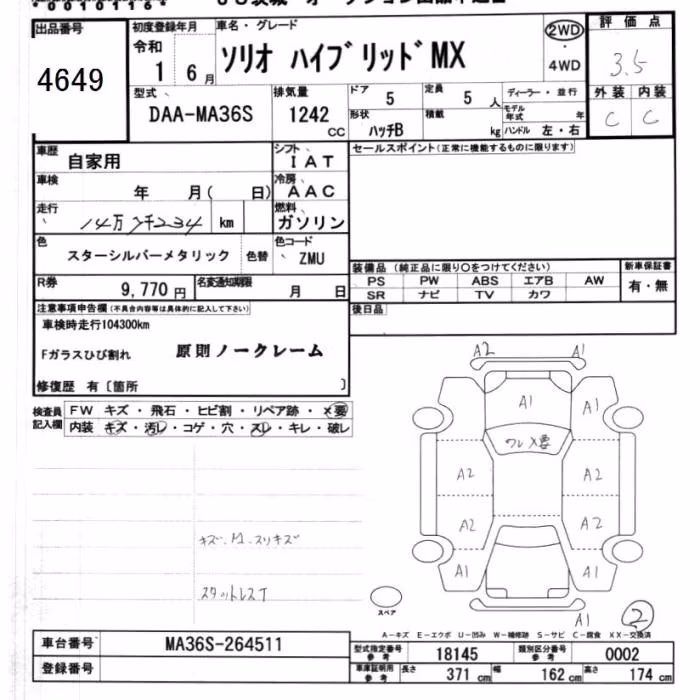 00101164
出品番号
4649
初度登録年月
令和
1 6 月
車名・グレード
ソリオ ハイブリッドMX
2WD
・
4WD
評価点
3.5
型式
DAA-MA36S
排気量
1242
CC
ドア 5
定員 5 人
形状 ハッチB
積載 kg
ディーラー・並行
モデル年式 年
ハンドル 左・右
外装 内装
C C
車歴 自家用
シフト IAT
セールスポイント(正常に機能するものに限ります)
車検 年 月( 日)
冷房 AAC
走行 14万 234 km
燃料 ガソリン
色 スターシルバーメタリック 色替
色コード ZMU
装備品 (純正品に限り○をつけてください)
新車保証書
有・無
PS PW ABS エアB AW
SR ナビ TV カワ
R券 9,770 円
名変通知期限 月 日
後日品
注意事項申告欄(不具合内容等は具体的に記入して下さい)
車検時走行104300km
Fガラスひび割れ 原則ノークレーム
修復歴 有〔箇所 〕
検査員記入欄
FW キズ・飛石・ヒビ割・リペア跡・×要
内装 キズ・汚レ・コゲ・穴・スレ・キレ・破レ
A2 A1
A1
A1
ワレ×要
A2 A2
A2 A2
A1 A1
A1
2
キズ、凹、スリキズ
スタットレスT
スペア
A-キズ E-エクボ U-凹み W-補修跡 S-サビ C-腐食 XX-交換済
車台番号 MA36S-264511
登録番号
型式指定番号 参考 18145
類別区分番号 参考 0002
車庫証明用 参考
長さ 371 cm
幅 162 cm
高さ 174 cm